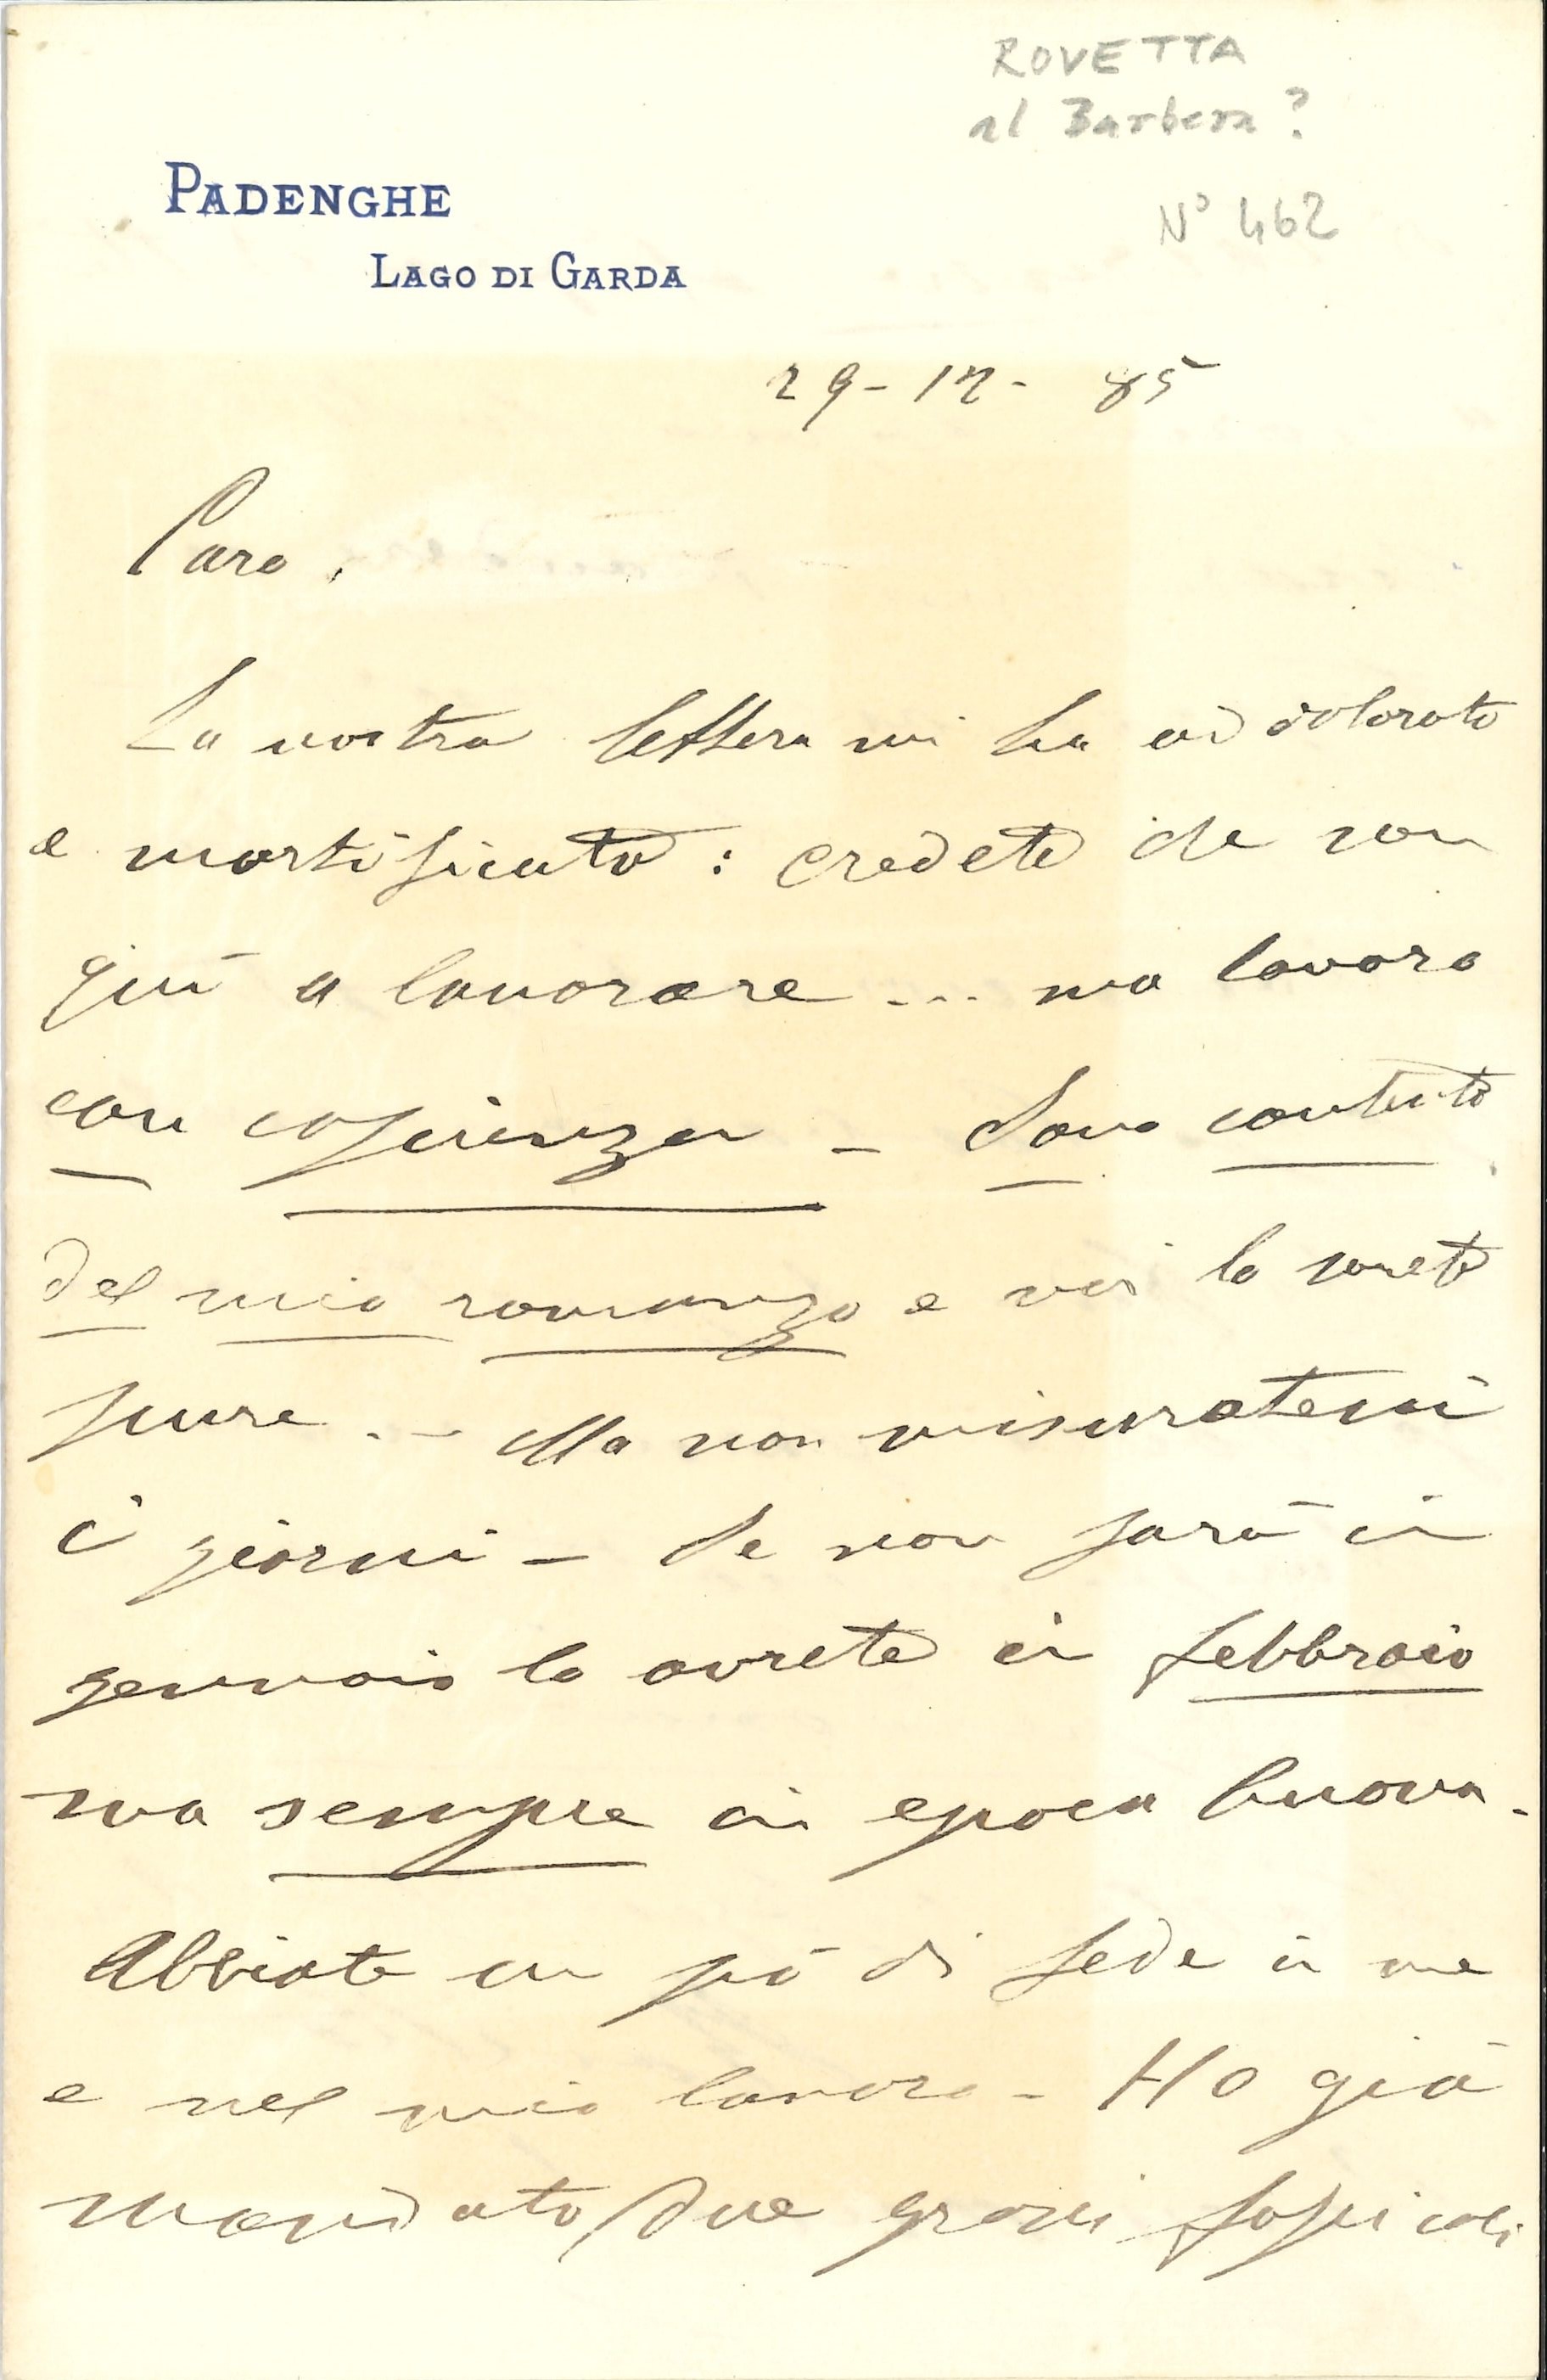 ROVETTA
al Barbera?
Nº 462
PADENGHE
LAGO DI GARDA
29-12-85
Caro,
La vostra lettera mi ha addolorato
e mortificato: credete che son
qui a lavorare ... ma lavoro
con coscienza - Sono contento
del mio romanzo e voi lo sarete
pure. - Ma non misuratemi
i giorni - Se non sarà in
gennaio lo avrete in febbraio
ma sempre in epoca buona.
Abbiate un pò di fede in me
e nel mio lavoro - Ho già
mandato due grossi fascicoli